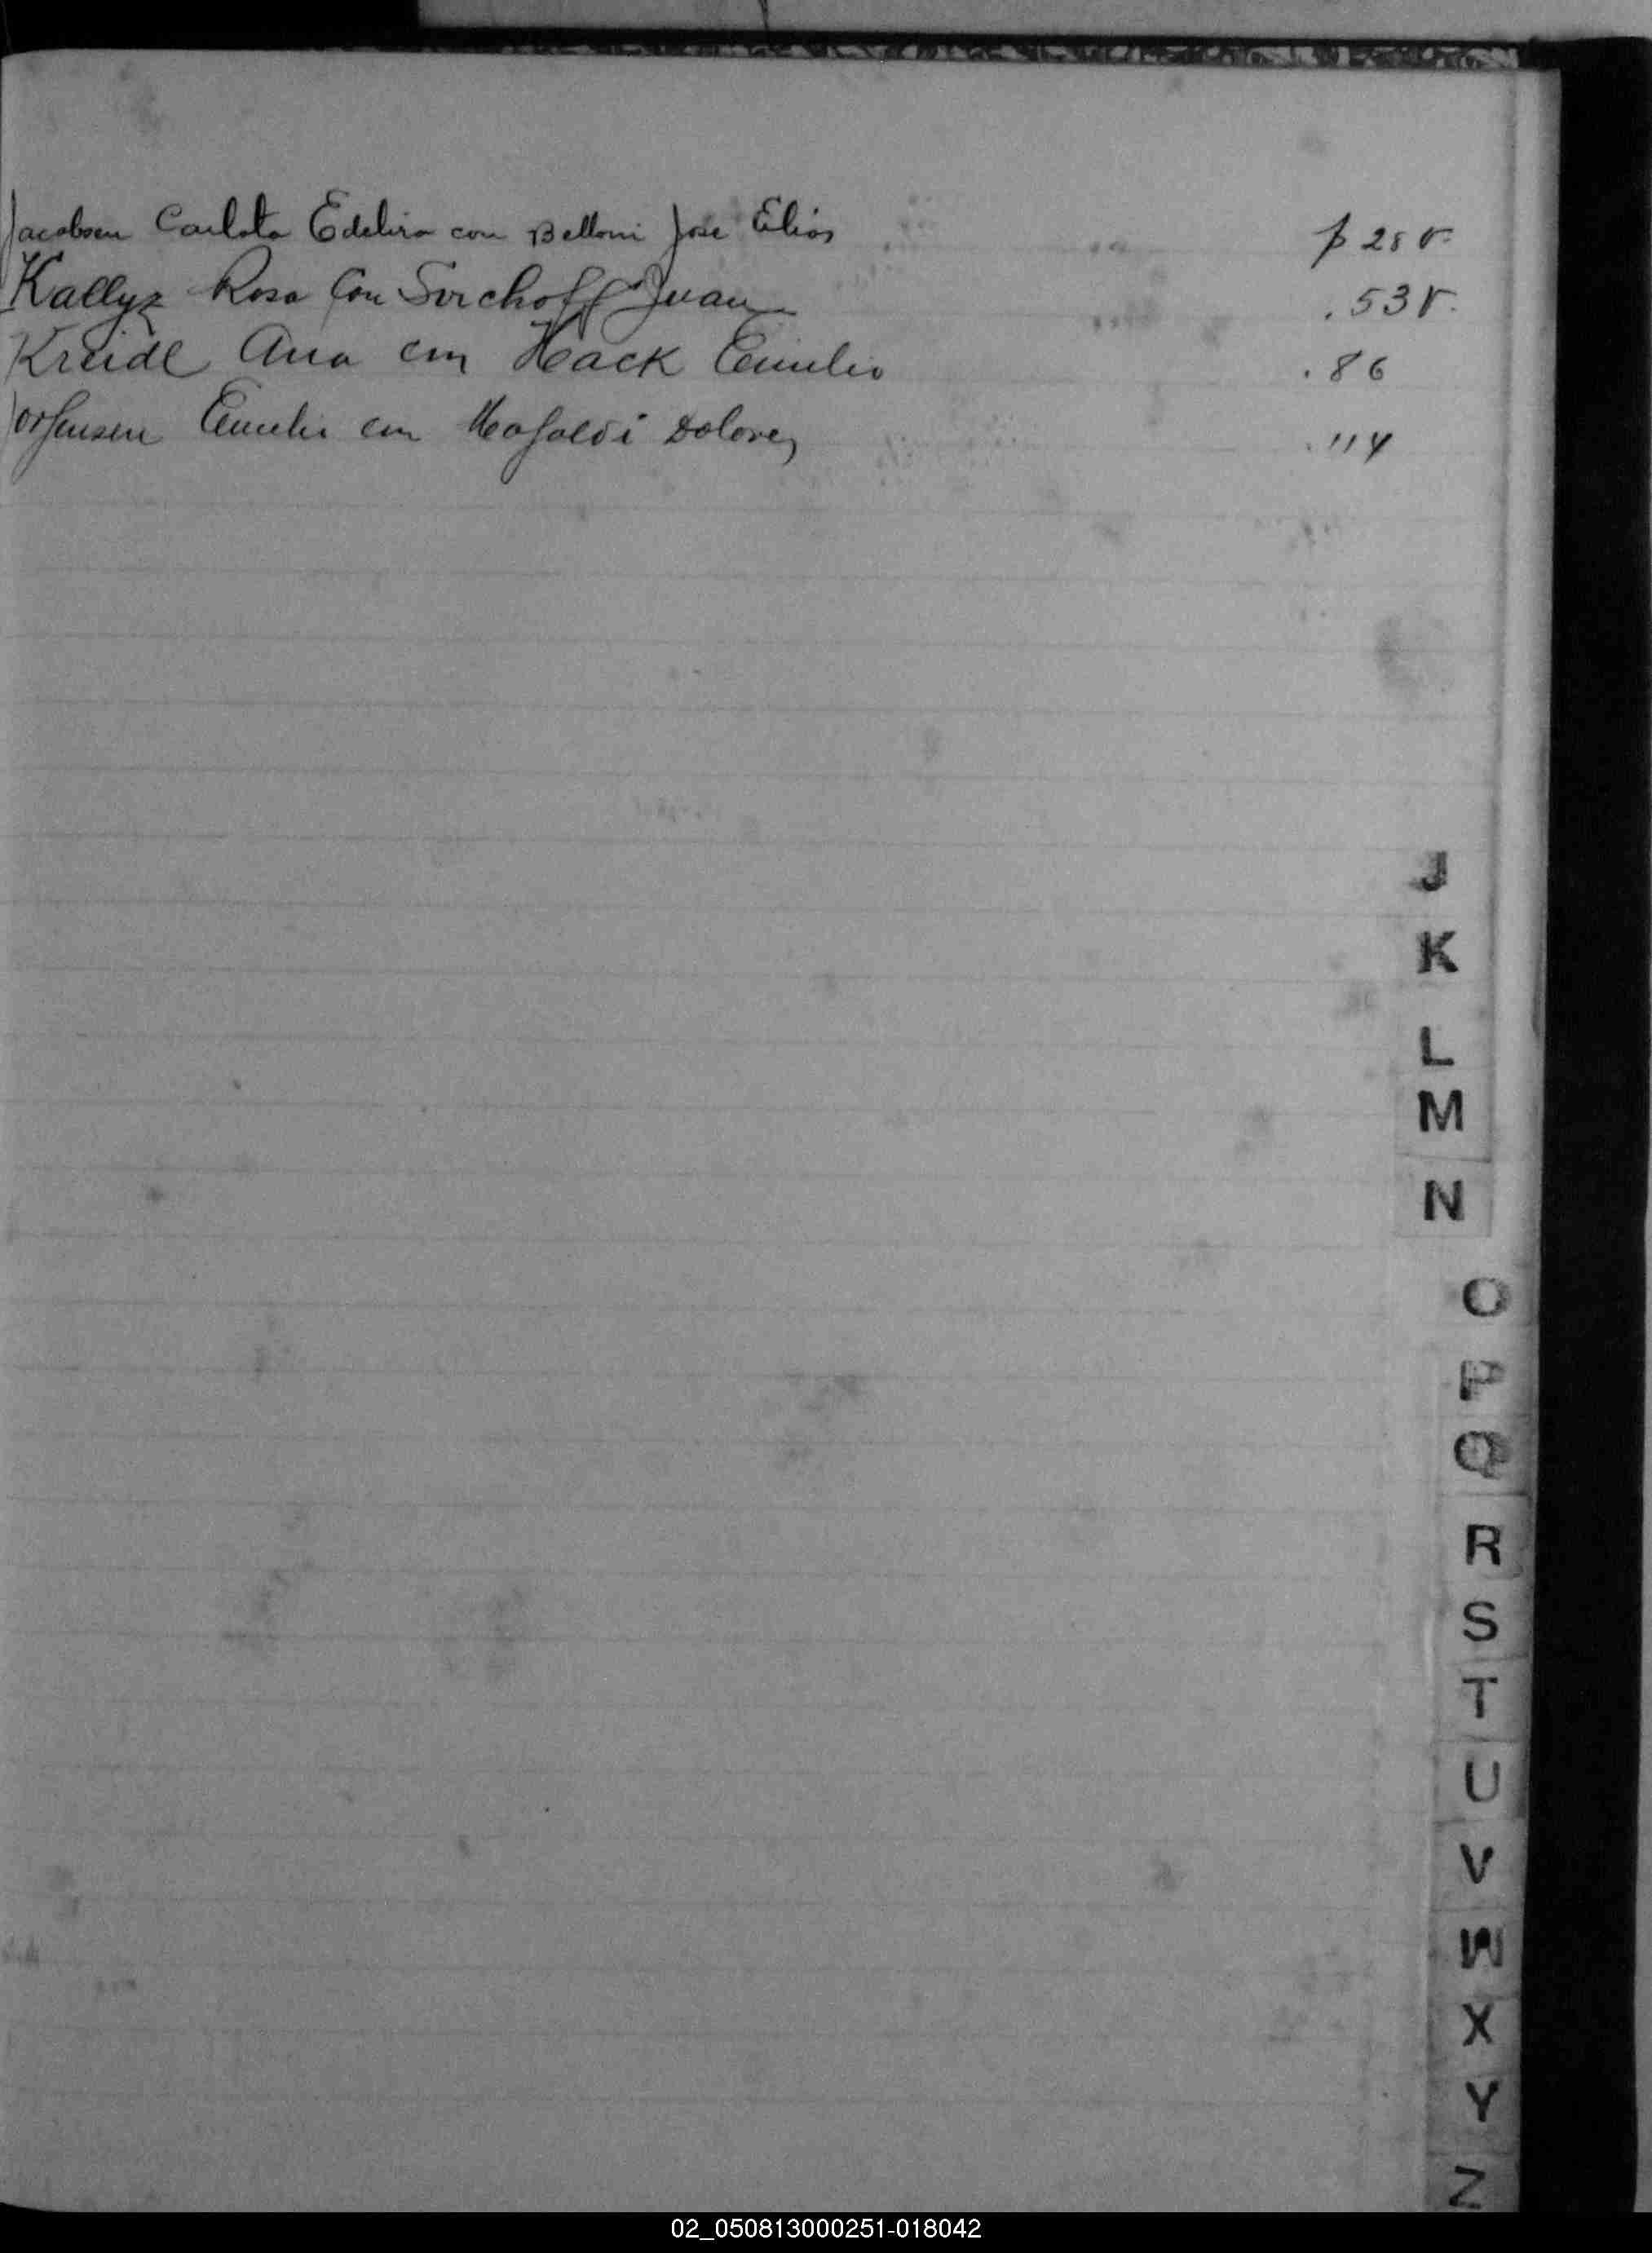 Jacobsen Carlota Edelira con Belloni Jose Elias f 28 v.
Kallyz Rosa Con Sirchoff Juan . 53 v.
Kreidl Ana con Hack Emilio . 86
Jorjensen Emilio con Dolores . 114
J
K
L
M
N
O
P
Q
R
S
T
U
V
W
X
Y
Z
02_050813000251-018042